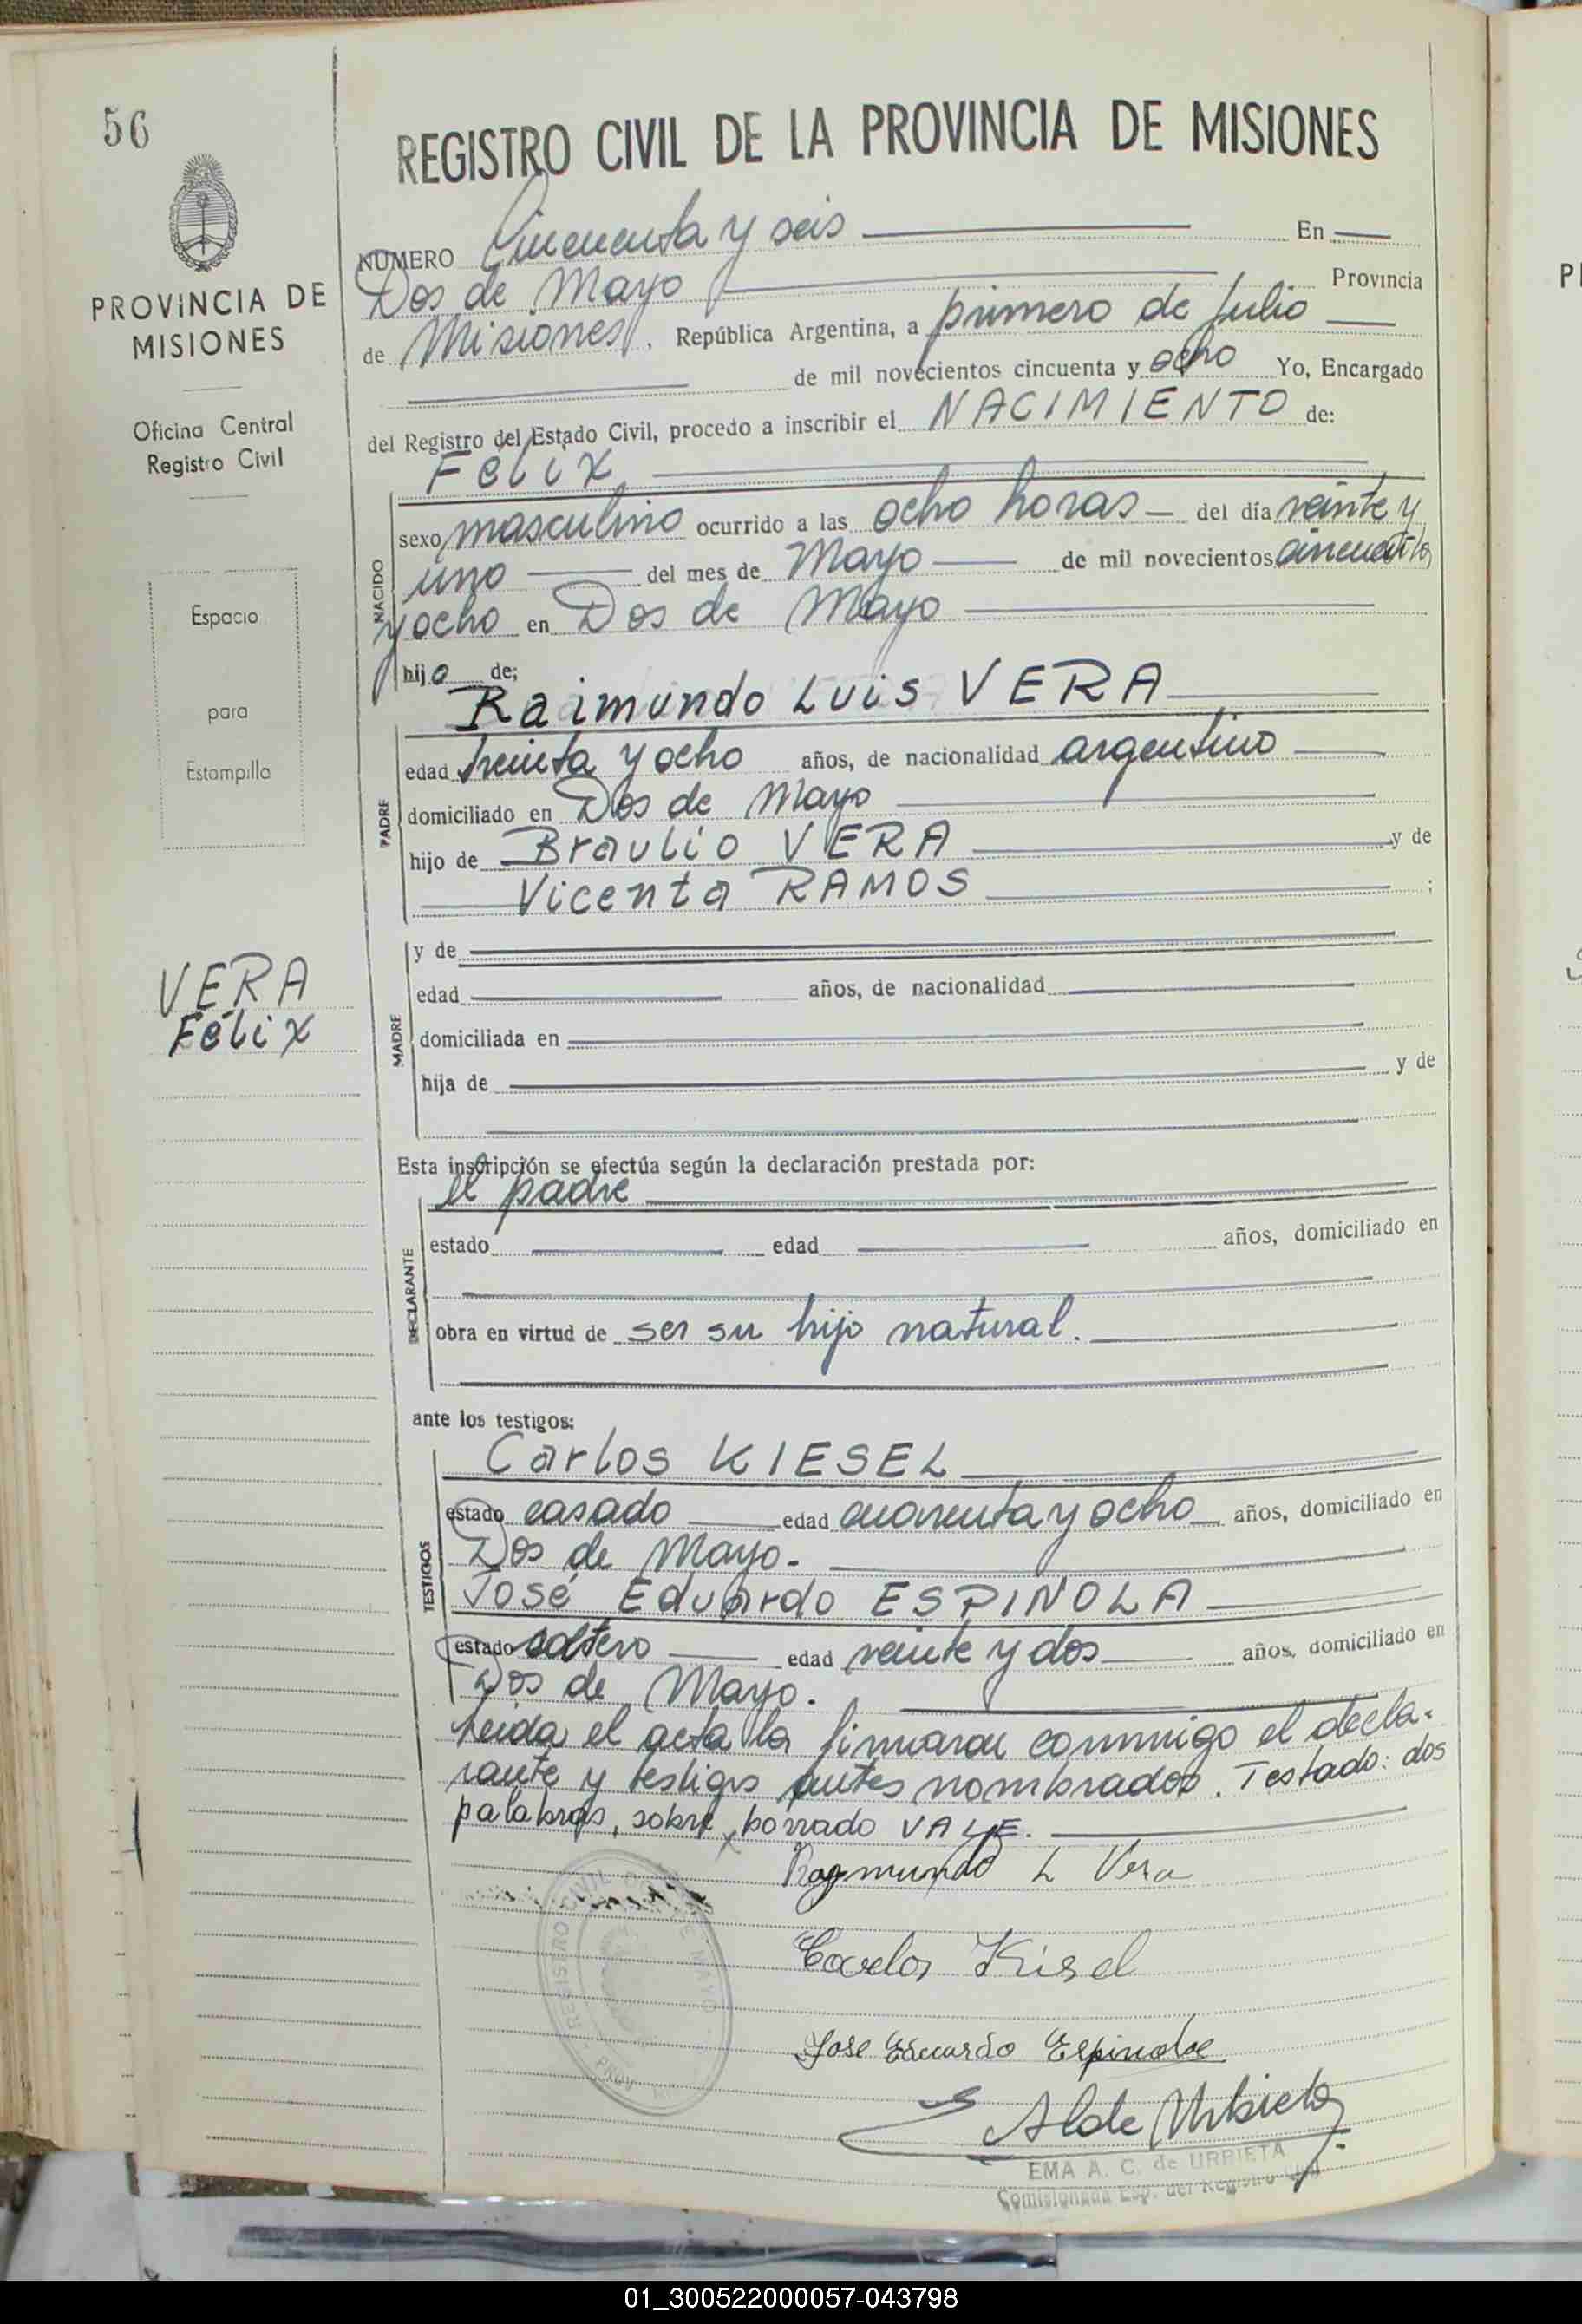 56
REGISTRO CIVIL DE LA PROVINCIA DE MISIONES
PROVINCIA DE
MISIONES
Oficina Central
Registro Civil
Espacio
para
Estampilla
VERA
Félix
NUMERO Cincuenta y seis En
Dos de Mayo Provincia
de Misiones, República Argentina, a primero de Julio
de mil novecientos cincuenta y ocho Yo, Encargado
del Registro del Estado Civil, procedo a inscribir el NACIMIENTO de:
Félix
NACIDO
sexo masculino ocurrido a las ocho horas del día veinte y
uno del mes de Mayo de mil novecientos cincuenta
y ocho en Dos de Mayo
hijo de;
Raimundo Luis VERA
PADRE
edad treinta y ocho años, de nacionalidad argentino
domiciliado en Dos de Mayo
hijo de Braulio VERA y de
Vicenta RAMOS ;
MADRE
y de
edad años, de nacionalidad
domiciliada en
hija de y de
Esta inscripción se efectúa según la declaración prestada por:
el padre
DECLARANTE
estado edad años, domiciliado en
obra en virtud de ser su hijo natural.
ante los testigos:
TESTIGOS
Carlos KIESEL
estado casado edad cuarenta y ocho años, domiciliado en
Dos de Mayo.
José Eduardo ESPINOLA
estado soltero edad veinte y dos años, domiciliado en
Dos de Mayo.
Leída el acta la firmaron conmigo el decla-
rante y testigos antes nombrados. Testado: dos
palabras, sobre borrado VALE.
Raymundo L Vera
Carlos Kisel
Jose Eduardo Espinola
A de Urbieta
EMA A. C. de URBIETA
Comisionada Esp. del Registro Civil
REGISTRO CIVIL DOS DE MAYO
01_300522000057-043798